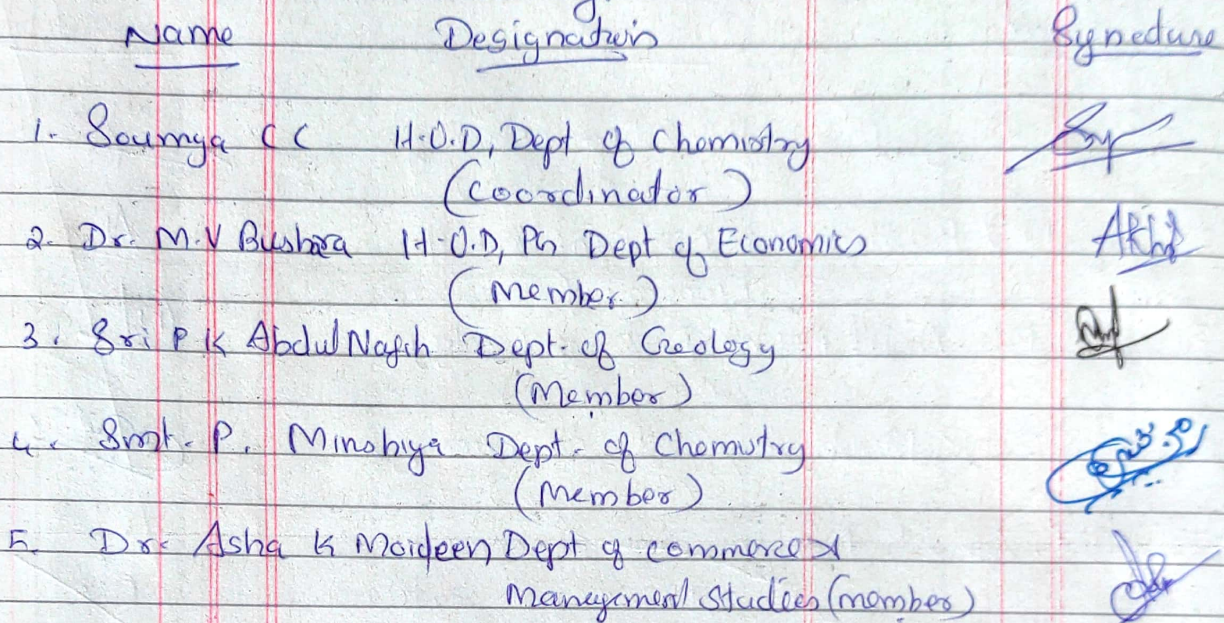 Name Designation Signature
1. Soumya CC H.O.D, Dept of Chemistry
(Coordinator)
2. Dr. M.V Bushara H.O.D, PG Dept of Economics
(Member)
3. Sri P K Abdul Nafih Dept. of Geology
(Member)
4. Smt. P. Minshiya Dept. of Chemistry
(Member)
5. Dr. Asha K Moideen Dept of commerce &
Management Studies (member)